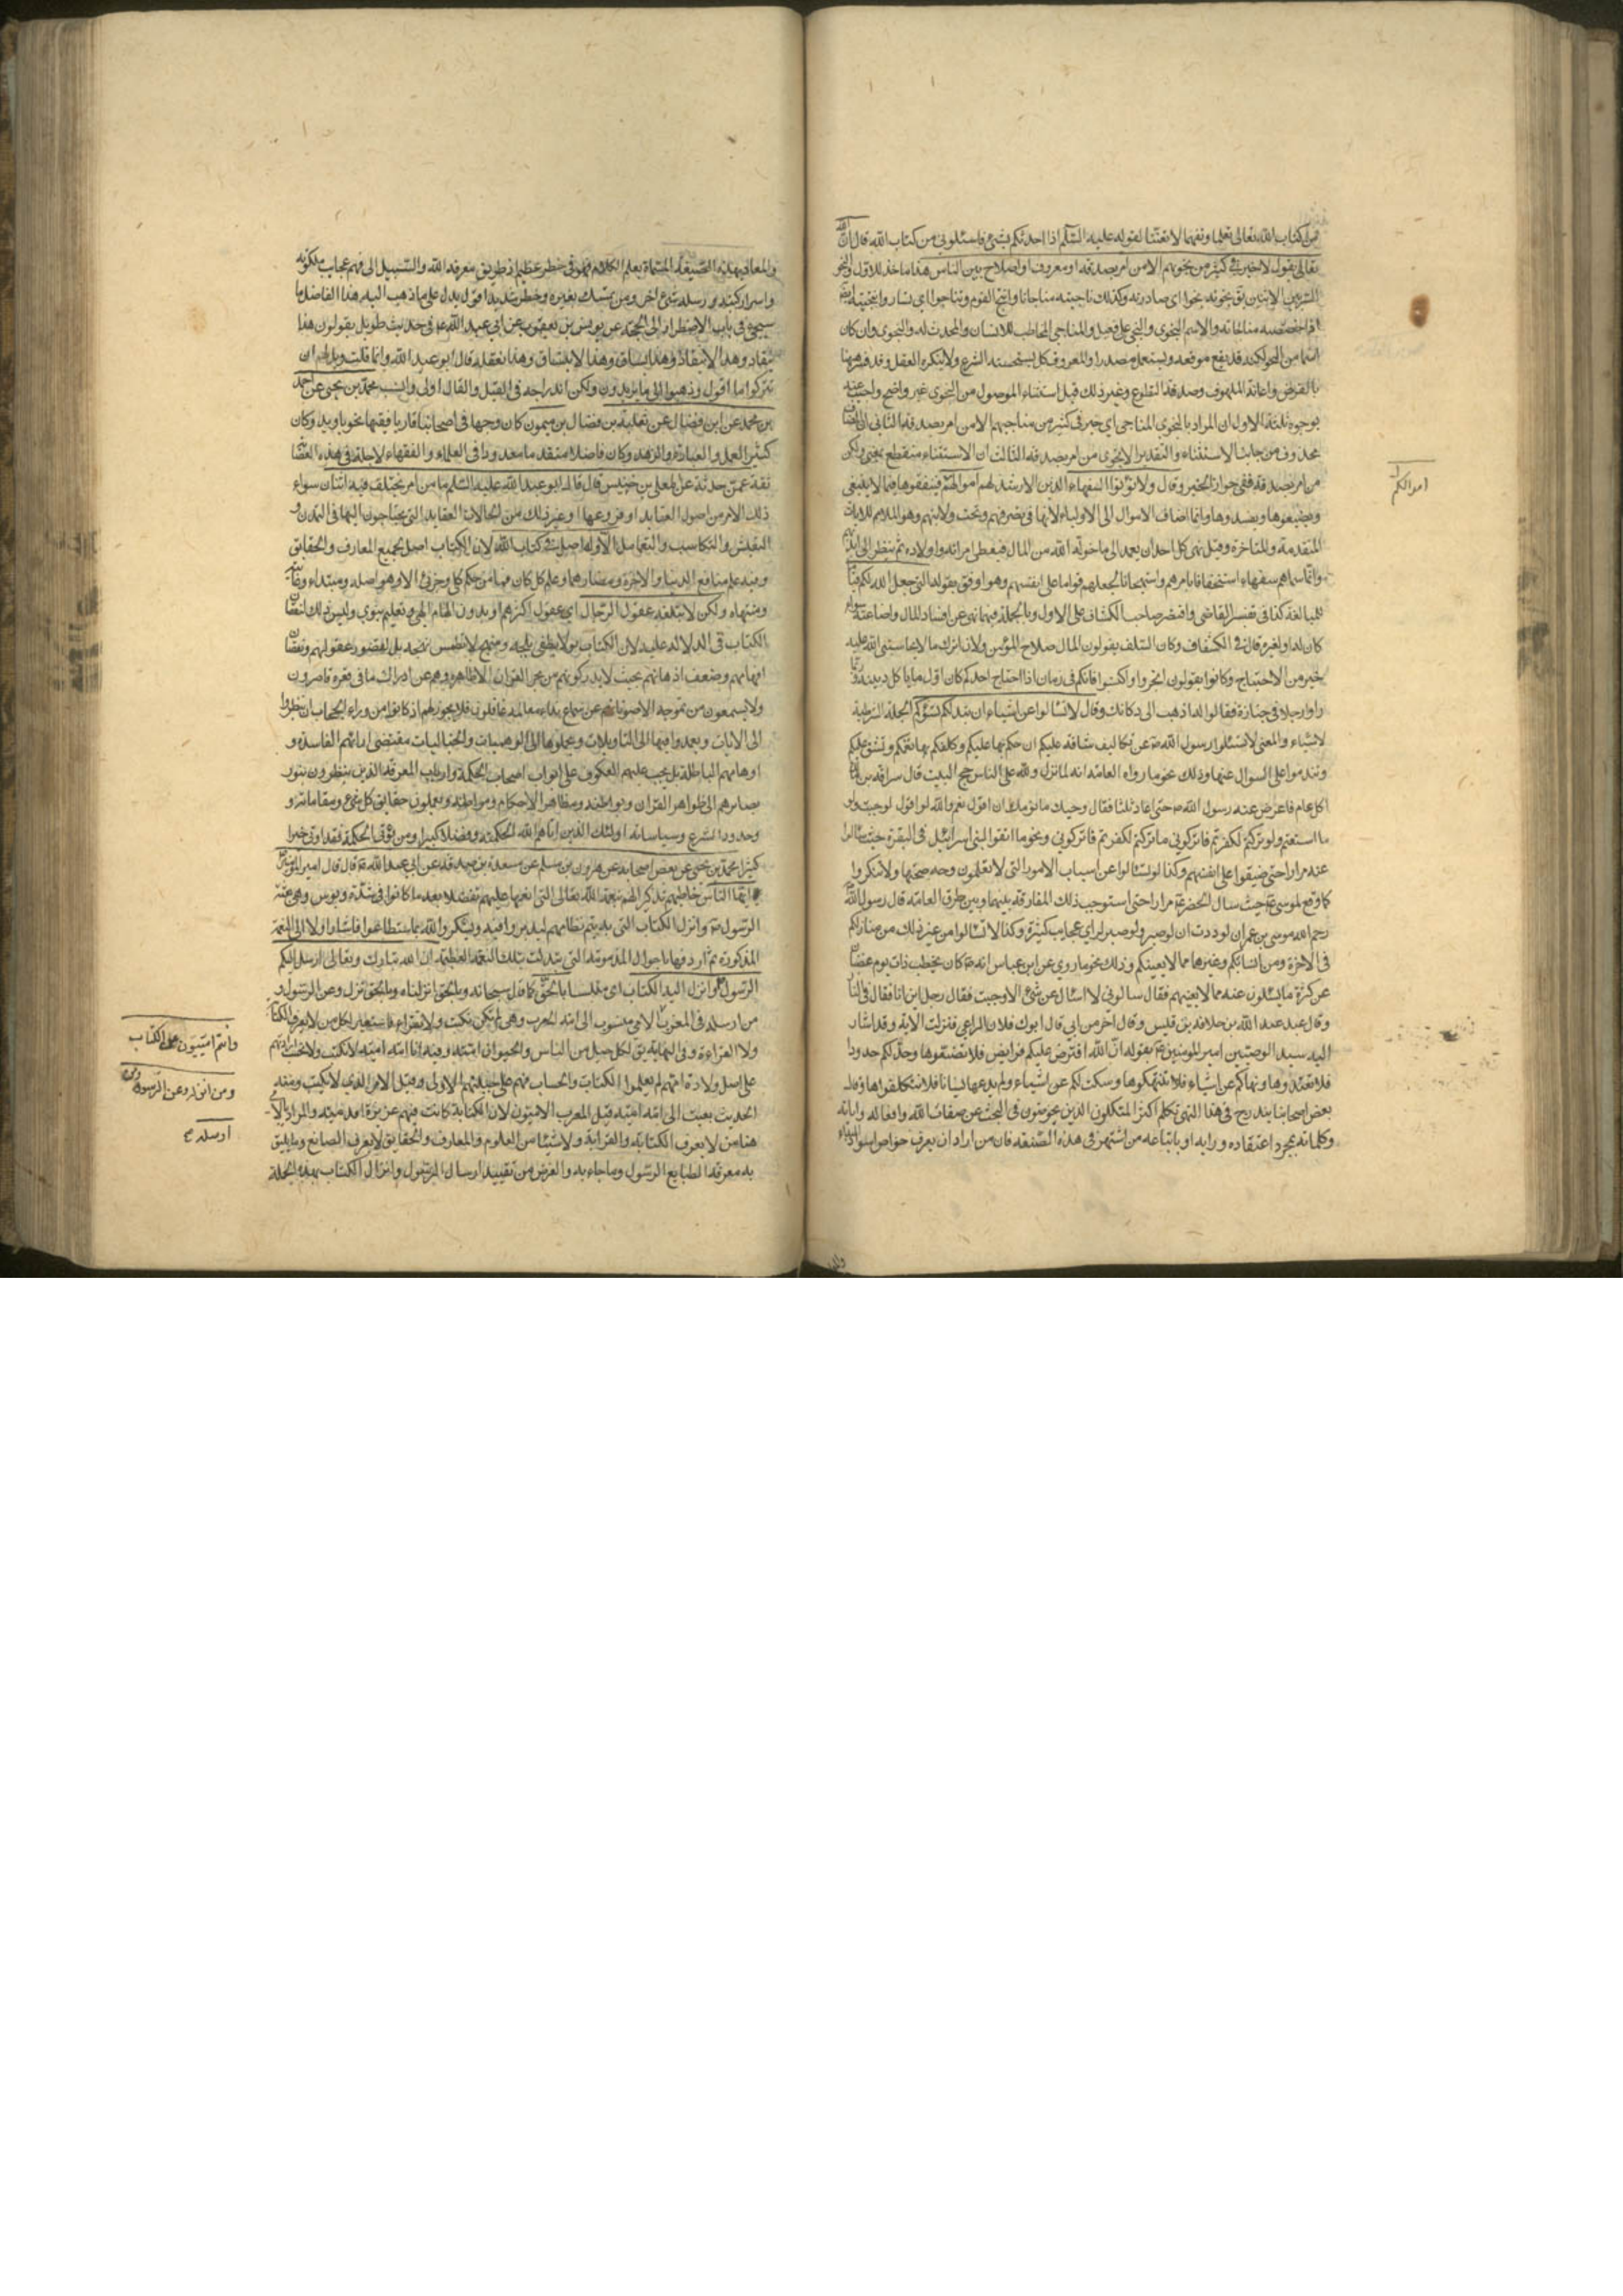 من كتاب الله تعالى تعلما وتفهما لا تعنتا لقوله عليه السلم اذا احدثكم بشئ فاسئلوني من كتاب الله قال ان الله
تعالى يقول لا خير في كثير من نجويهم الا من امر بصدقة او معروف او اصلاح بين الناس هذا ماخذ للاول والنجو
السر بين الاثنين يق نجوته نجوا اي ساررته وكذلك ناجيته مناجاة وانتجى القوم وتناجوا اي تساروا وانتجيته ايضا
اذا خصصته بمناجاته والاسم النجوى والنجي على فعيل والمناجي المخاطب للانسان والمحدث له والنجوى وان كان
اسما من النجو لكنه قد يقع موقعه ويستعمل مصدرا والمعروف كل ما يستحسنه الشرع ولا ينكره العقل وقد فسر هنا
بالقرض واعانة الملهوف وصدقة التطوع وغير ذلك قيل استثناء الموصول من النجوى غير واضح واجيب عنه
بوجوه ثلثة الاول ان المراد بالنجوى المتناجي اي خير في كثير من متناجيهم الا من امر بصدقة الثاني ان المضاف
محذوف من جانب الاستثناء والتقدير الا نجوى من امر بصدقة الثالث ان الاستثناء منقطع يعني ولكن
من امر بصدقة ففي نجواه الخير وقال ولا تؤتوا السفهاء الذين لا رشد لهم اموالهم فينفقوها فيما لا ينبغي
ويضيعوها ويفسدوها وانما اضاف الاموال الى الاولياء لانها في تصرفهم وتحت ولايتهم وهو الملايم للايات
المتقدمة والمتاخرة وقيل نهى كل احد ان يعمد الى ما خوله الله من المال فيعطي امراته واولاده ثم ينظر الى ايديهم
وانما سماهم سفهاء استخفافا بامرهم واستهجانا لجعلهم قواما على انفسهم وهو اوفق بقوله التي جعل الله لكم قياما
كان له او لغيره قال في الكشاف وكان السلف يقولون المال سلاح المؤمن ولان اترك مالا يحاسبني الله عليه
خير من الاحتياج وكانوا يقولون اتجروا واكتسبوا فانكم في زمان اذا احتاج احدكم كان اول ما ياكل دينه وربما
راوا رجلا في جنازة فقالوا له اذهب الى دكانك وقال لا تسالوا عن اشياء ان تبد لكم تسؤكم الجملة الشرطية
لاشياء والمعنى لا تسئلوا رسول الله ص عن تكاليف شاقة عليكم ان حكم بها عليكم وكلفكم بها تغمكم وتشق عليكم
وتندموا على السؤال عنها وذلك نحو ما رواه العامة انه لما نزل ولله على الناس حج البيت قال سراقة بن مالك
اكل عام فاعرض عنه رسول الله ص حتى اعاد ثلثا فقال ويحك ما يؤمنك ان اقول نعم والله لو اقول لوجبت ولو وجبت
ما استطعتم ولو تركتم لكفرتم فاتركوني ما تركتكم
عنه مرارا حتى ضيقوا على انفسهم وكذا لو تسئالوا عن اسباب الامور التي لا تعلمون وجه صحتها ولا تنكروا
كما وقع لموسى ع حيث سال الخضر ع مرارا حتى استوجب ذلك المفارقة بينهما ومن طرق العامة قال رسول الله ص
رحم الله موسى بن عمران لوددت ان لو صبر ولو صبر لراى عجايب كثيرة وكذا لا تسئالوا من غير ذلك من منازلكم
في الاخرة ومن انسابكم وغيرها مما لا يعنيكم وذلك نحو ما روي عن ابن عباس انه ص كان يخطب ذات يوم غضبان
عن كثرة ما يسئلون عنه مما لا يعنيهم فقال سالوني لا اسئال عن شئ الا اجبت فقال رجل اين انا فقال في النار
وقال عبد الله بن حذافة بن قيس وقال اخر من ابي قال ابوك فلان الراعي فنزلت الاية وقد اشار
اليه سيد الوصيين امير المؤمنين ع بقوله ان الله افترض عليكم فرايض فلا تضيعوها وحد لكم حدودا
فلا تعتدوها ونهاكم عن اشياء فلا تنتهكوها وسكت لكم عن اشياء ولم يدعها نسيانا فلا تتكلفوها وقال
بعض اصحابنا يندرج في هذا النهي تكلم اكثر المتكلمين الذين يخوضون في البحث عن صفات الله وافعاله واياته
وكلماته بمجرد اعتقاده ورايه او باتباعه من اشتهر في هذه الصنعة فان من اراد ان يعرف خواص اسرار المبداء
اموالكم
والمعاد بهذه الصنعة المسماة بعلم الكلام فهو في خطر عظيم اذ طريق معرفة الله والسبيل الى فهم عجايب ملكوته
واسرار كتبه ورسله شئ اخر ومن تمسك بغيره وخطر شديد اقول يدل على ما ذهب اليه هذا الفاضل ما
سيجئ في باب الاضطرار الى الحجة عن يونس بن يعقوب عن ابي عبد الله ع في حديث طويل يقولون هذا
ينقاد وهذا لا ينقاد وهذا ينساق وهذا لا ينساق وهذا نعقله قال ابو عبد الله ع انما قلت ويل لهم ان
تركوا ما اقول وذهبوا الى ما يريدون ولكن اندراجه في القيل والقال اولى وانسب محمد بن يحيى عن احمد
بن محمد عن ابن فضال عن ثعلبة بن ميمون كان وجها في اصحابنا قاريا فقيها نحويا وكان
كثير العمل والعبادة والزهد وكان فاضلا متقدما معدودا في العلماء والفقهاء الاجلة في هذه العصابة
ثقة عمن حدثه عن المعلى بن خنيس قال قال ابو عبد الله عليه السلم ما من امر يختلف فيه اثنان سواء
ذلك الامر من اصول العقايد او فروعها او غير ذلك من الحالات العقايد التي يحتاجون اليها في التمدن و
التعيش والتكاسب والتعامل الا وله اصل في كتاب الله لان الكتاب اصل لجميع المعارف والحقايق
وفيه علم منافع الدنيا والاخرة ومضارهما وعلم كل كان فما من حكم كلي وجزئي الا وهو اصله ومبتداه
ومنتهاه ولكن لا تبلغه عقول الرجال اي عقول اكثرهم او بدون الهام الهي وتعليم نبوي وليس ذلك لنقصان
الكتاب في الدلالة عليه لان الكتاب نور لا يطفى ومنهج لا ينطمس نهجه بل لقصور عقولهم ونقصان
افهامهم وضعف اذهانهم بحيث لا يدركونهم من بحر القران الا ظاهره وهم عن ادراك ما في قعره قاصرون
ولا يسمعون من تموجه الا صوتا وهم عن سماع نداء معالمه غافلون فلا يجوز لهم اذ كانوا من وراء الحجاب ان ينظروا
الى الايات ويعمدوا فيها الى التاويلات ويحملوها الى الوهميات والخياليات مقتضى ارائهم الفاسدة و
اوهامهم الباطلة بل يجب عليهم العكوف على ابواب اصحاب الحكمة وارباب المعرفة الذين ينظرون بنور
بصايرهم الى ظواهر القران وبواطنه ومظاهر الاحكام ومواطنه ويعلمون حقايق كل شئ ومقاماته و
وحدود الشرع وسياساته اولئك الذين اتاهم الله الحكمة وفضلا كبيرا ومن يؤت الحكمة فقد اوتي خيرا
كثيرا محمد بن يحيى عن بعض اصحابه عن هرون بن مسلم عن مسعدة بن صدقة عن ابي عبد الله ع قال قال امير المؤمنين ع
ايها الناس خاطبهم تذكيرا لهم بنعمة الله تعالى التي انعمها عليهم تفضلا بعد ما كانوا في شدة وبؤس وهي بعثة
الرسول ص وانزل الكتاب التي به يتم نظامهم ليدبروا فيه ويشكروا الله بما استطاعوا فاشار اولا الى النعمة
المذكورة ثم اردفها باحوال المذمومة التي تبدلت بتلك النعمة العظيمة ان الله تبارك وتعالى ارسل اليكم
الرسول وانزل اليه الكتاب اي متلبسا بالحق كما قال سبحانه وبالحق انزلناه وبالحق نزل وعن الرسول و
من ارسله في المغرب الامي منسوب الى امة العرب وهي لم تكن تكتب ولا تقراء فاستعير لكل من لا يعرف الكتابة
ولا القراءة وفي النهاية يق لكل جيل من الناس والحيوان امة وفيه انا امة امية لا نكتب ولا نحسب اراد انهم
على اصل ولادة امهم لم يعلموا الكتاب والحساب فهم على جبلتهم الاولى وقيل الامي الذي لا يكتب ومنه
الحديث بعثت الى امة امية قيل للعرب الاميون لان الكتابة كانت فيهم عزيزة او عديمة والمراد بالامي
هنا من لا يعرف الكتابة والقراية ولا شيئا من العلوم والمعارف والحقايق لا يعرف الصانع وما يليق
به معرفة الطبايع الرسول وما جاء به والغرض من تقييد ارسال الرسول وانزال الكتاب بهذه الجملة
وانتم اميون عن الكتاب
ومن انزله وعن الرسول ومن
ارسله ع